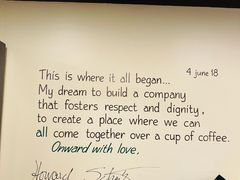 4 june 18
This is where it all began...
My dream to build a company
that fosters respect and dignity,
to create a place where we can
all come together over a cup of coffee.
Onward with love,
Howard